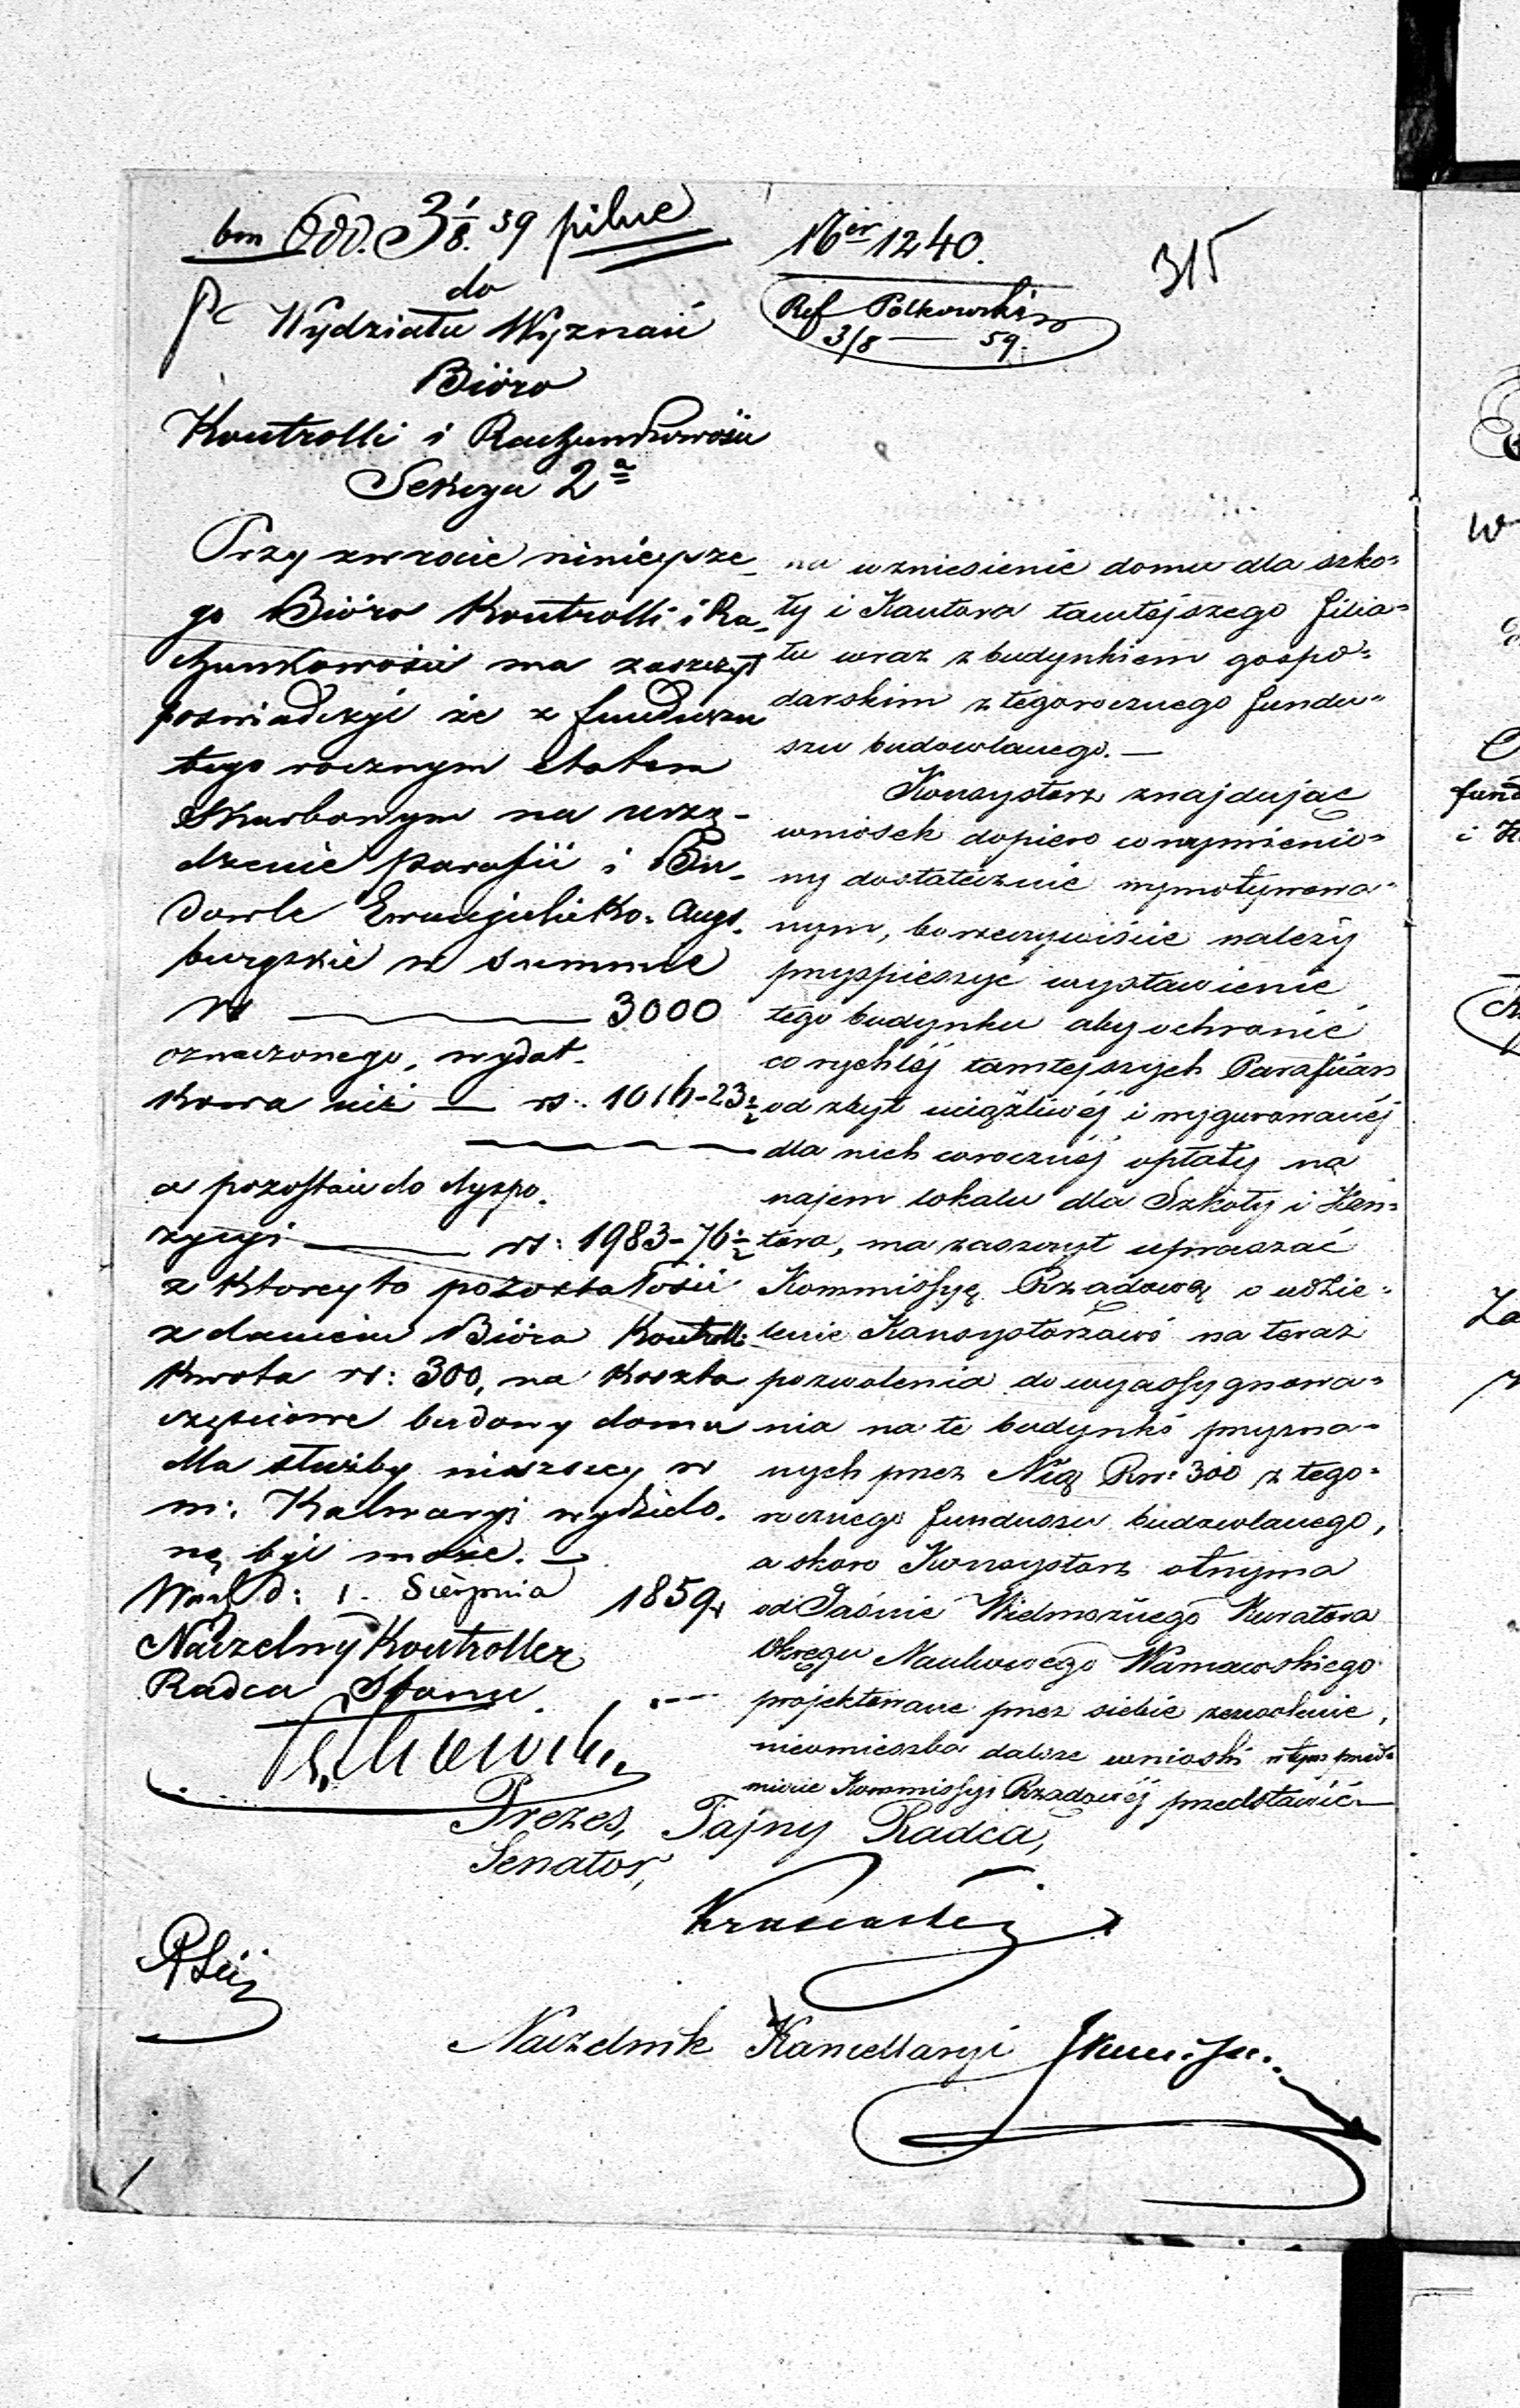 Odd. 3/8. 59 pilne
Ner 1240.
315
Ref Polkowski
3/8 — 59.
do
Wydziału Wyznań
Bióro
Kontrolli i Rachunkowości
Sekcya 2a
Przy zwrocie niniejsze-
go Bióro Kontrolli i Ra-
chunkowości ma zaszczyt
poswiadczyć że z funduszu
tego rocznym etatem
Skarbowym na urzą-
dzenie parafii i Bu-
dowle Ewangelicko-Augs-
burgskie w summie
rs — 3000
oznaczonego, wydat-
kowa niż — rs: 1016-23½
a pozostaie do dyspo-
zycyi — rs: 1983-76½
z ktorey to pozostałości
zdaniem Bióra Kontrolli
kwota rs: 300, na koszta
częściowe budowy domu
dla służby niższey w
m: Kalwaryi wydzielo-
ną być może. —
Warsz d: 1. Sierpnia 1859 r
Naczelny Kontroller
Radca Stanu
na wzniesienie domu dla szko-
ły i Kantora tamtéjszego filia-
łu wraz z budynkiem gospo-
darskim z tegorocznego fundu-
szu budowlanego. —
Konsystorz znajdując
wniosek dopiero co wymienio-
ny dostatecznie wymotywowa-
nym, bo rzeczywiście należy
przyspieszyć wystawienie
tego budynku aby ochronić
co rychléj tamtejszych Parafian
od zbyt uciążliwéj i wygurowanéj
dla nich corocznéj opłaty na
najem lokalu dla Szkoły i Kan-
tora, ma zaszczyt upraszać
Kommissyę Rządową o udzie-
lenie Konsystorzowi na teraz
pozwolenia do wyassygnowa-
nia na te budynki przyzna-
nych przez Nią Rsr: 300 z tego-
rocznego funduszu budowlanego,
a skoro Konsystorz otrzyma
od Jaśnie Wielmożnego Kuratora
Okręgu Naukowego Warszawskiego
projektowane przez siebie zezwolenie,
nieomieszka dalsze wnioski w tym przed-
miocie Kommissyi Rządowéj przedstawić —
Prezes, Tajny Radca,
Senator,
Naczelnik Kancellaryi